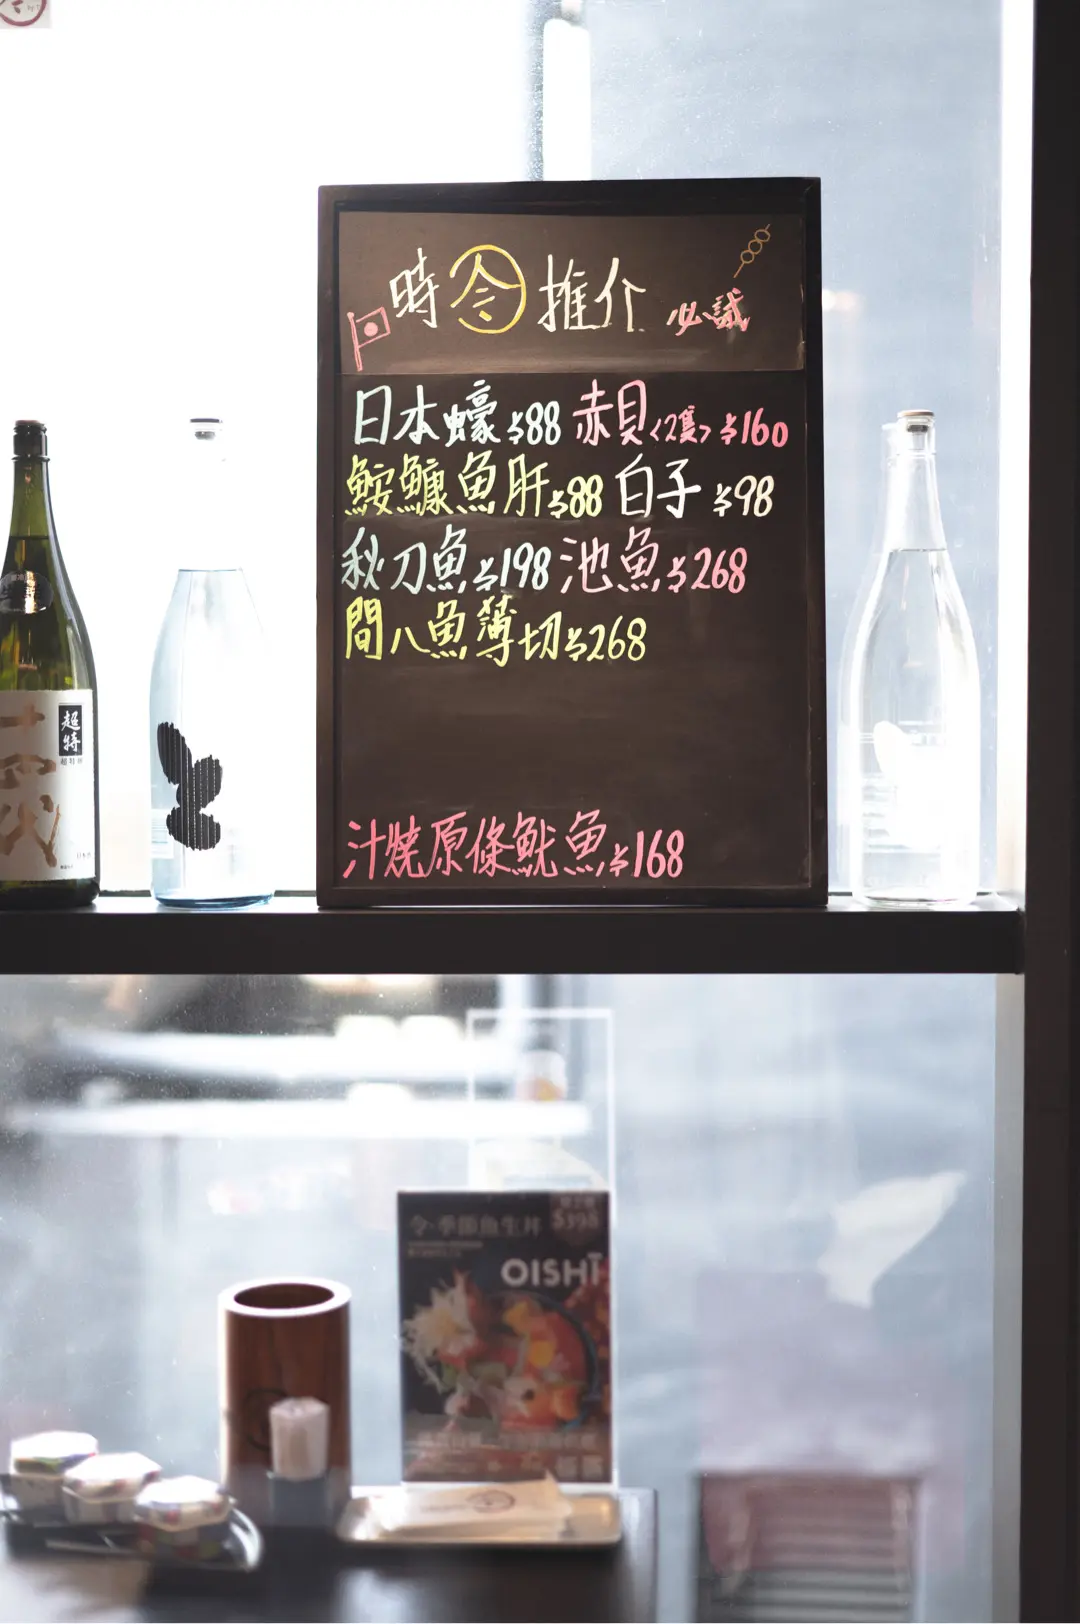 時令推介 必誠
日本蠔$88 赤貝<2隻>$160
鮟鱇魚肝$88 白子 $98
秋刀魚$198 池魚$268
間八魚薄切$268
汁燒原條魷魚$168
十四代
超特
令·季節魚生丼
$398
OISHī